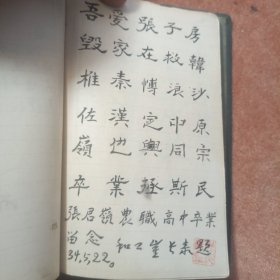 吾愛張子房
毀家在救韓
椎秦博浪沙
佐漢定中原
嶺也興同宗
卒業拯斯民
張君嶺農職高中卒業
留念 題
34,5,22。